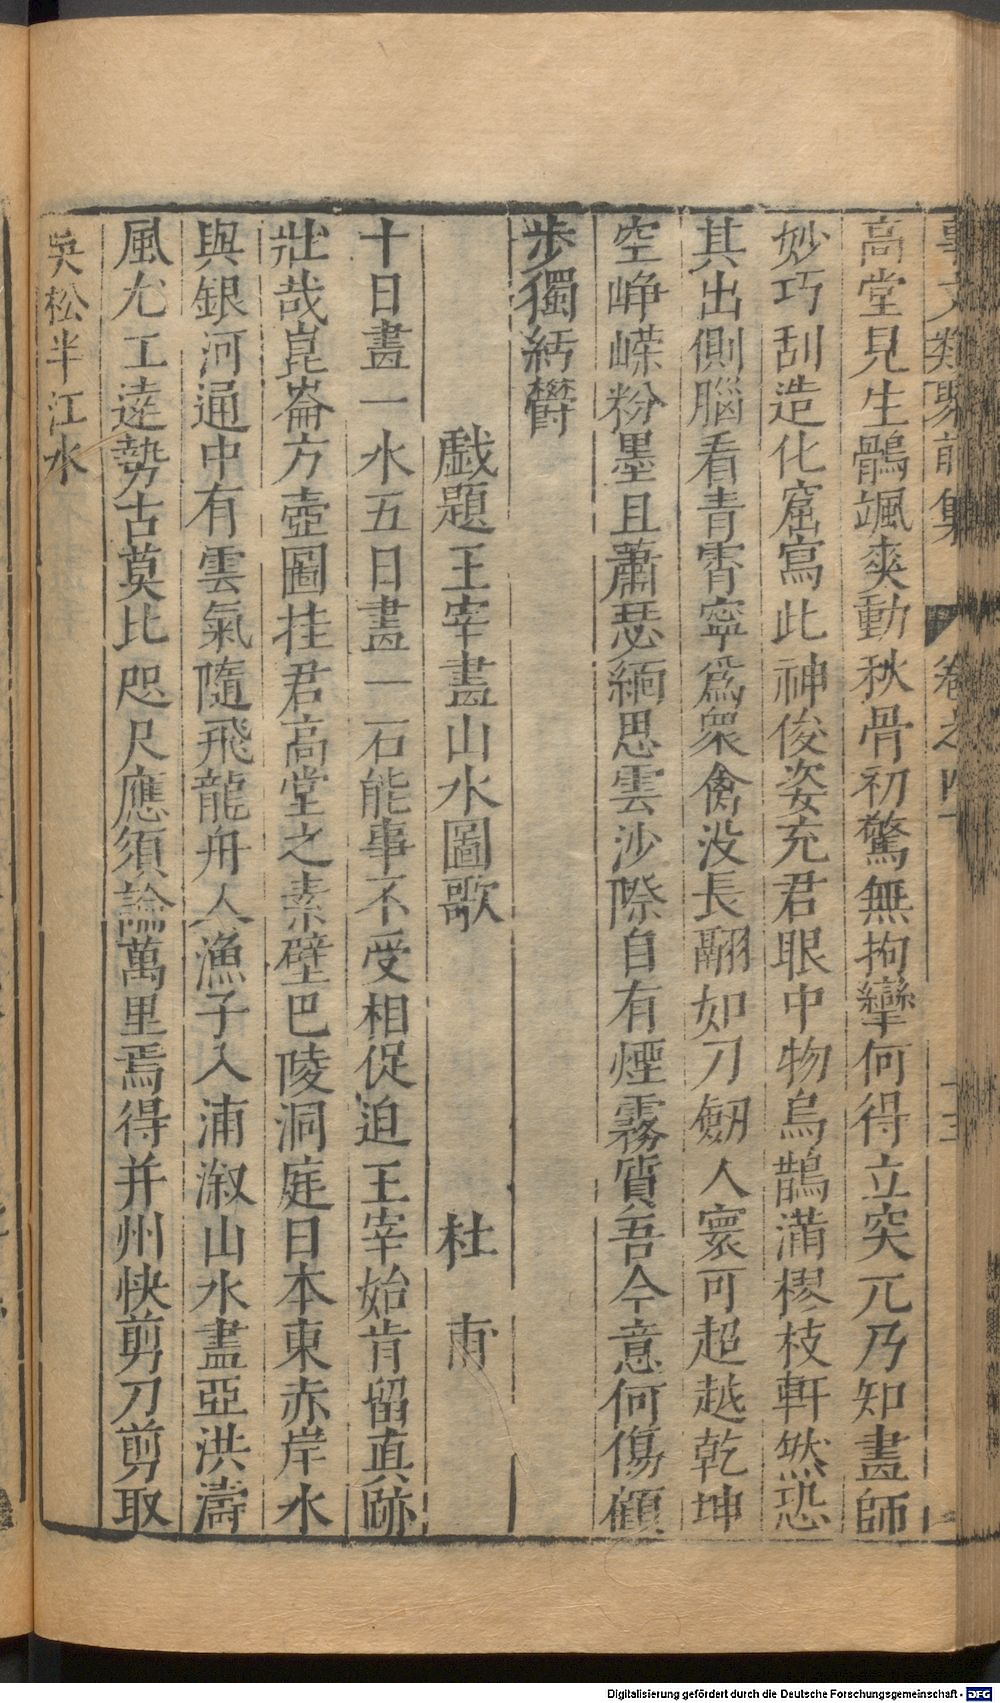 事文類聚前集 卷之四十 十三
高堂見生鶻颯爽動秋骨初驚無拘攣何得立突兀乃知畫師
妙巧刮造化窟寫此神俊姿充君眼中物烏鵲滿樛枝軒然恐
其出側腦看青霄寧爲衆禽没長翮如刀劒人寰可超越乾坤
空崢嶸粉墨且蕭瑟緬思雲沙際自有煙霧質吾今意何傷顧
步獨紆鬱
戱題王宰畫山水圖歌 杜甫
十日畫一水五日畫一石能事不受相促迫王宰始肯留真跡
壯哉崑崙方壺圖挂君高堂之素壁巴陵洞庭日本東赤岸水
與銀河通中有雲氣隨飛龍舟人漁子入浦溆山水盡亞洪濤
風尤工遠勢古莫比咫尺應須論萬里焉得并州快剪刀剪取
吳松半江水
Digitalisierung gefördert durch die Deutsche Forschungsgemeinschaft - DFG